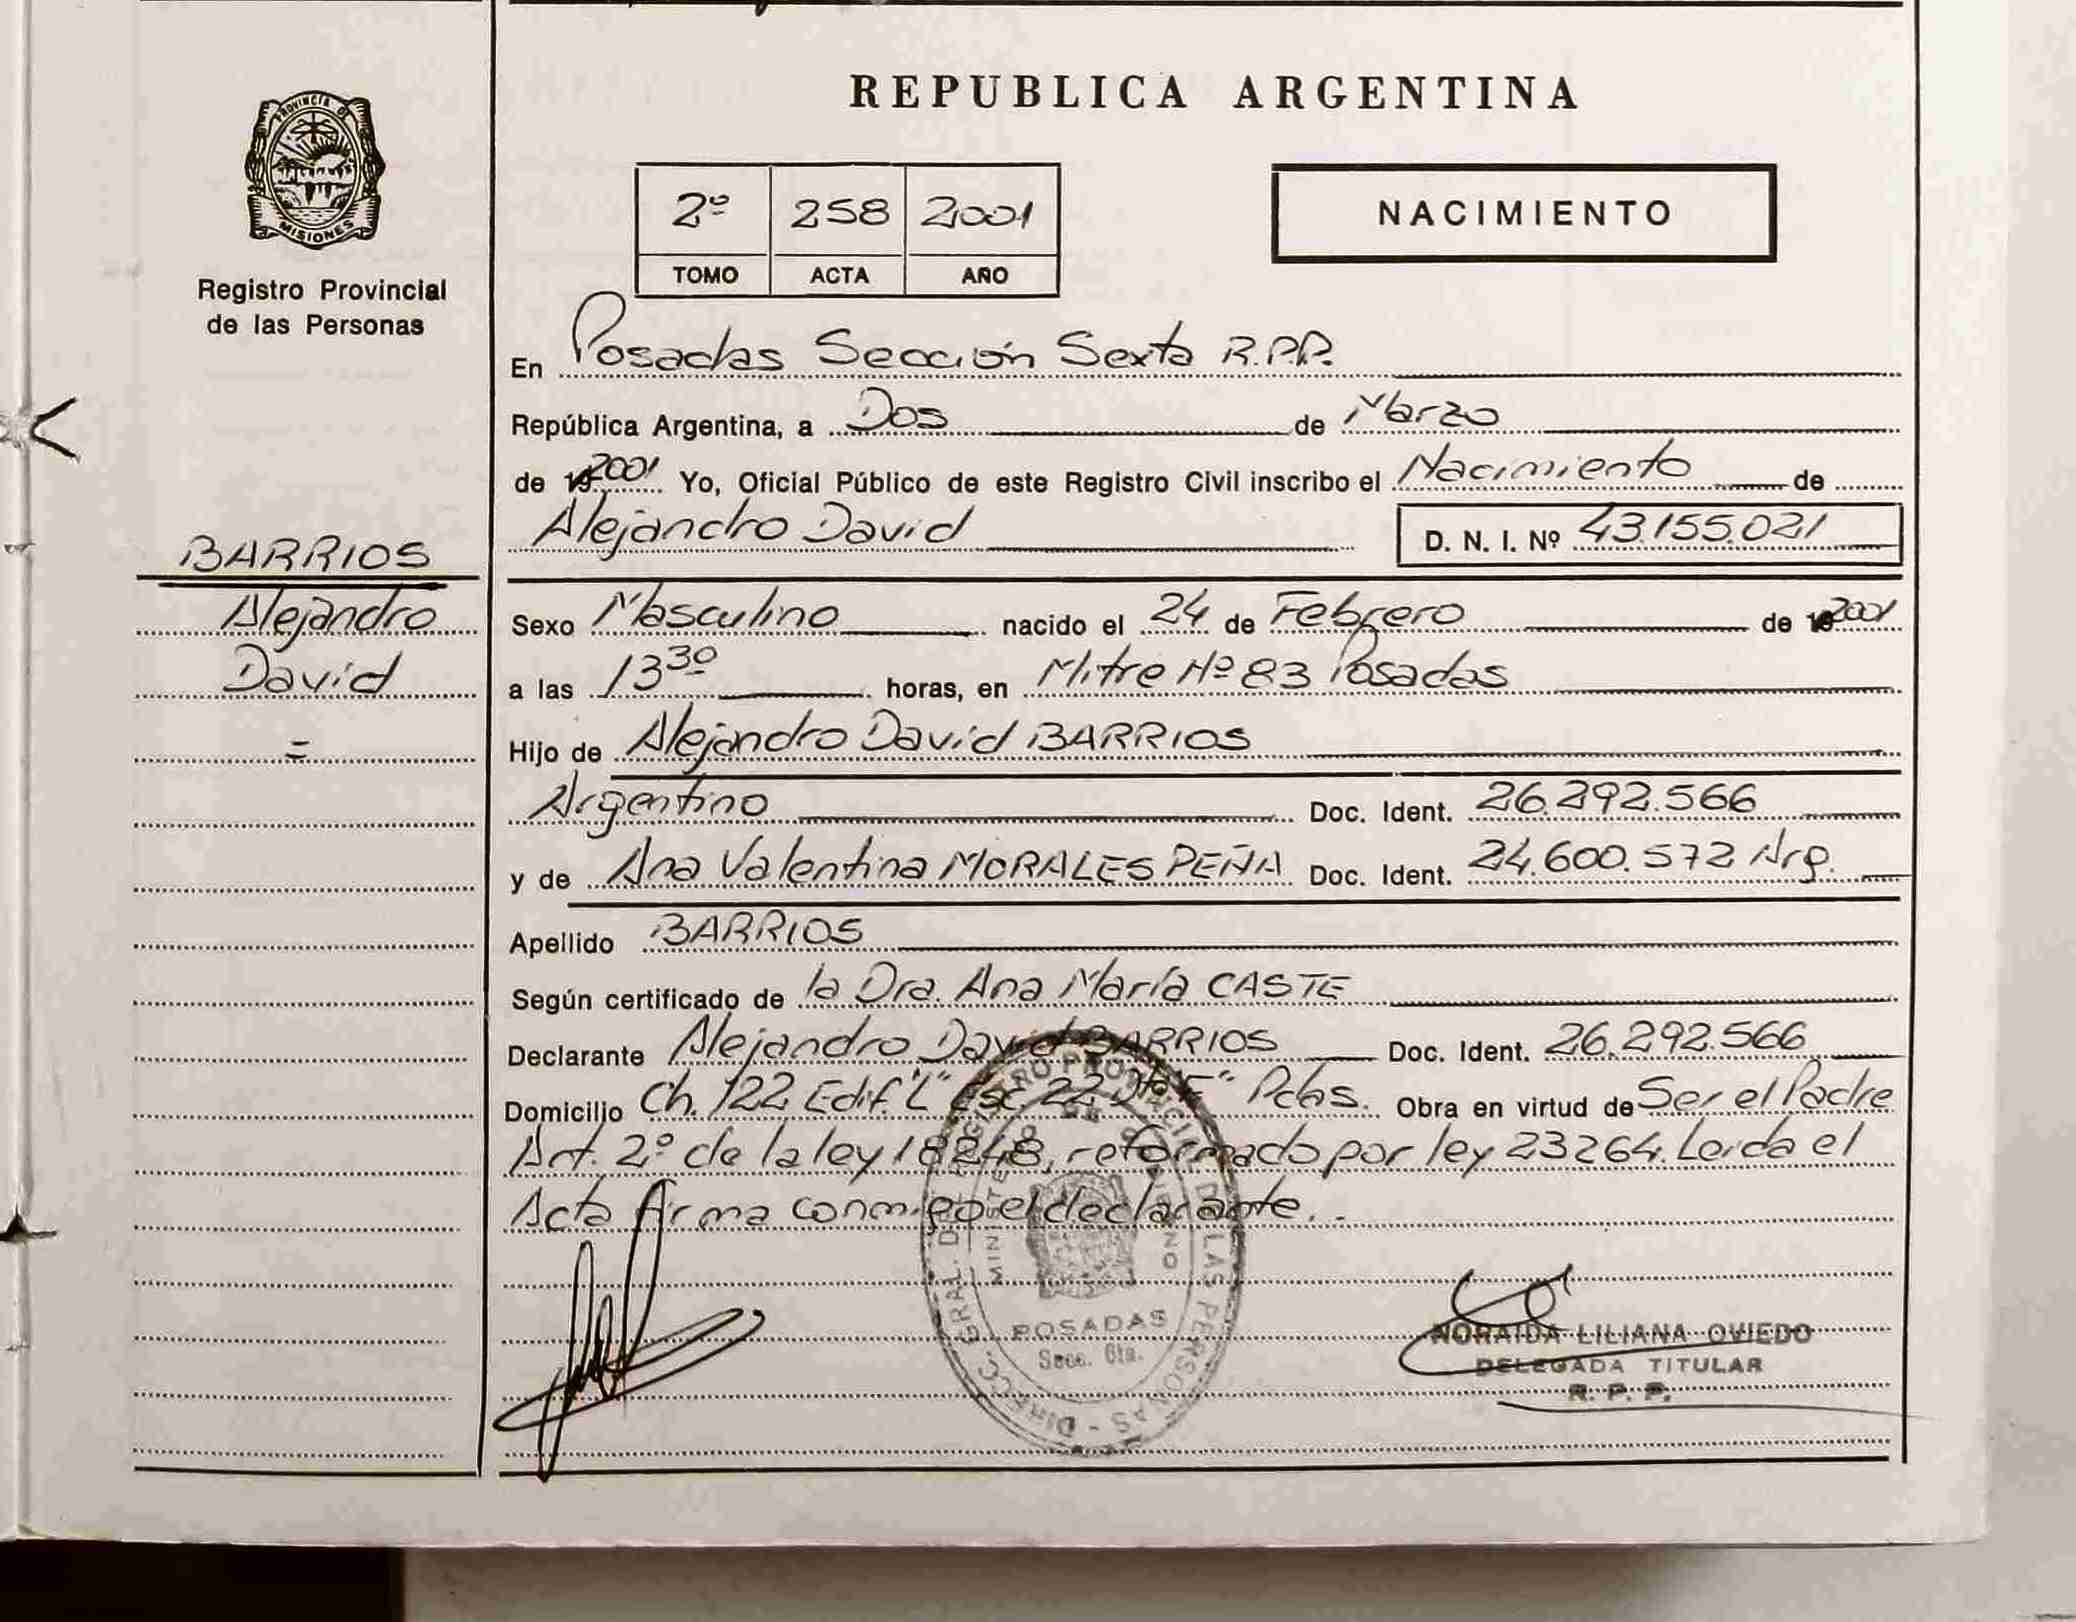 REPUBLICA ARGENTINA
PROVINCIA DE
MISIONES
Registro Provincial
de las Personas
2º 258 2001
TOMO ACTA AÑO
NACIMIENTO
En Posadas Sección Sexta R.P.P.
República Argentina, a Dos de Marzo
de 2001 Yo, Oficial Público de este Registro Civil inscribo el Nacimiento de
Alejandro David D. N. I. Nº 43.155.021
BARRIOS
Alejandro
David
=
Sexo Masculino nacido el 24 de Febrero de 2001
a las 13 30 horas, en Mitre Nº 83 Posadas
Hijo de Alejandro David BARRIOS
Argentino Doc. Ident. 26.292.566
y de Ana Valentina MORALES PEÑA Doc. Ident. 24.600.572 Arg.
Apellido BARRIOS
Según certificado de la Dra. Ana María CASTE
Declarante Alejandro David BARRIOS Doc. Ident. 26.292.566
Domicilio Ch. 122 Edif. "L" Esc 22 Dto "E" Pdas. Obra en virtud de Ser el Padre
Art. 2º de la ley 18248, reformado por ley 23264. Leida el
Acta firma conmigo el declarante.
DIRECC. GRAL. DE REGISTRO PROVINCIAL DE LAS PERSONAS
MINISTERIO DE GOBIERNO
POSADAS
Secc. 6ta.
NORAIDA LILIANA OVIEDO
DELEGADA TITULAR
R. P. P.